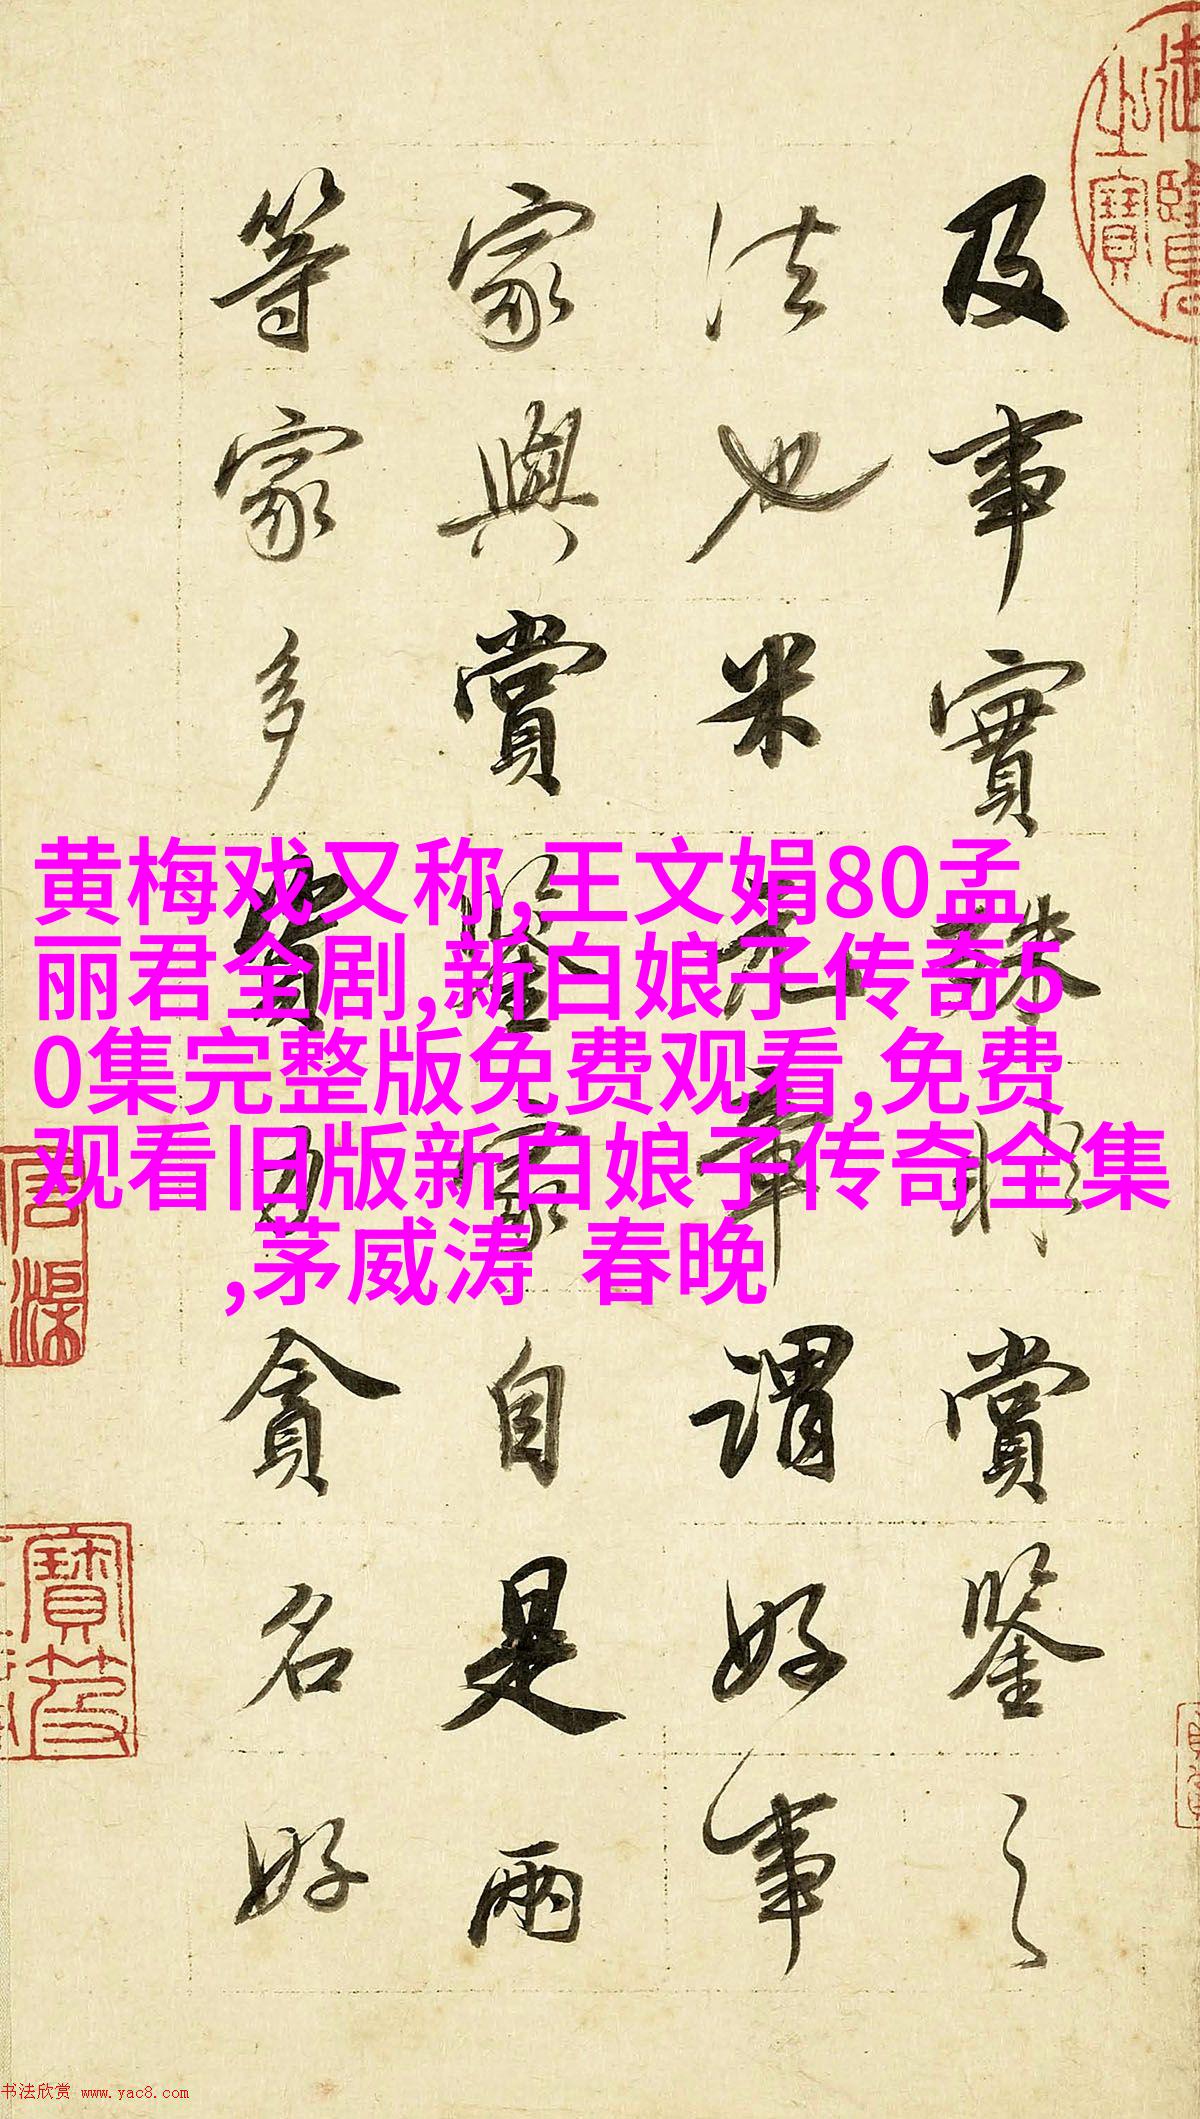 及事實殊非賞鑒之
法也米元章謂好事
家與賞鑒家自是兩
等家多資力貪名好
黄梅戏又称,王文娟80孟
丽君全剧,新白娘子传奇5
0集完整版免费观看,免费
观看旧版新白娘子传奇全集
,茅威涛 春晚
书法欣赏 www.yac8.com